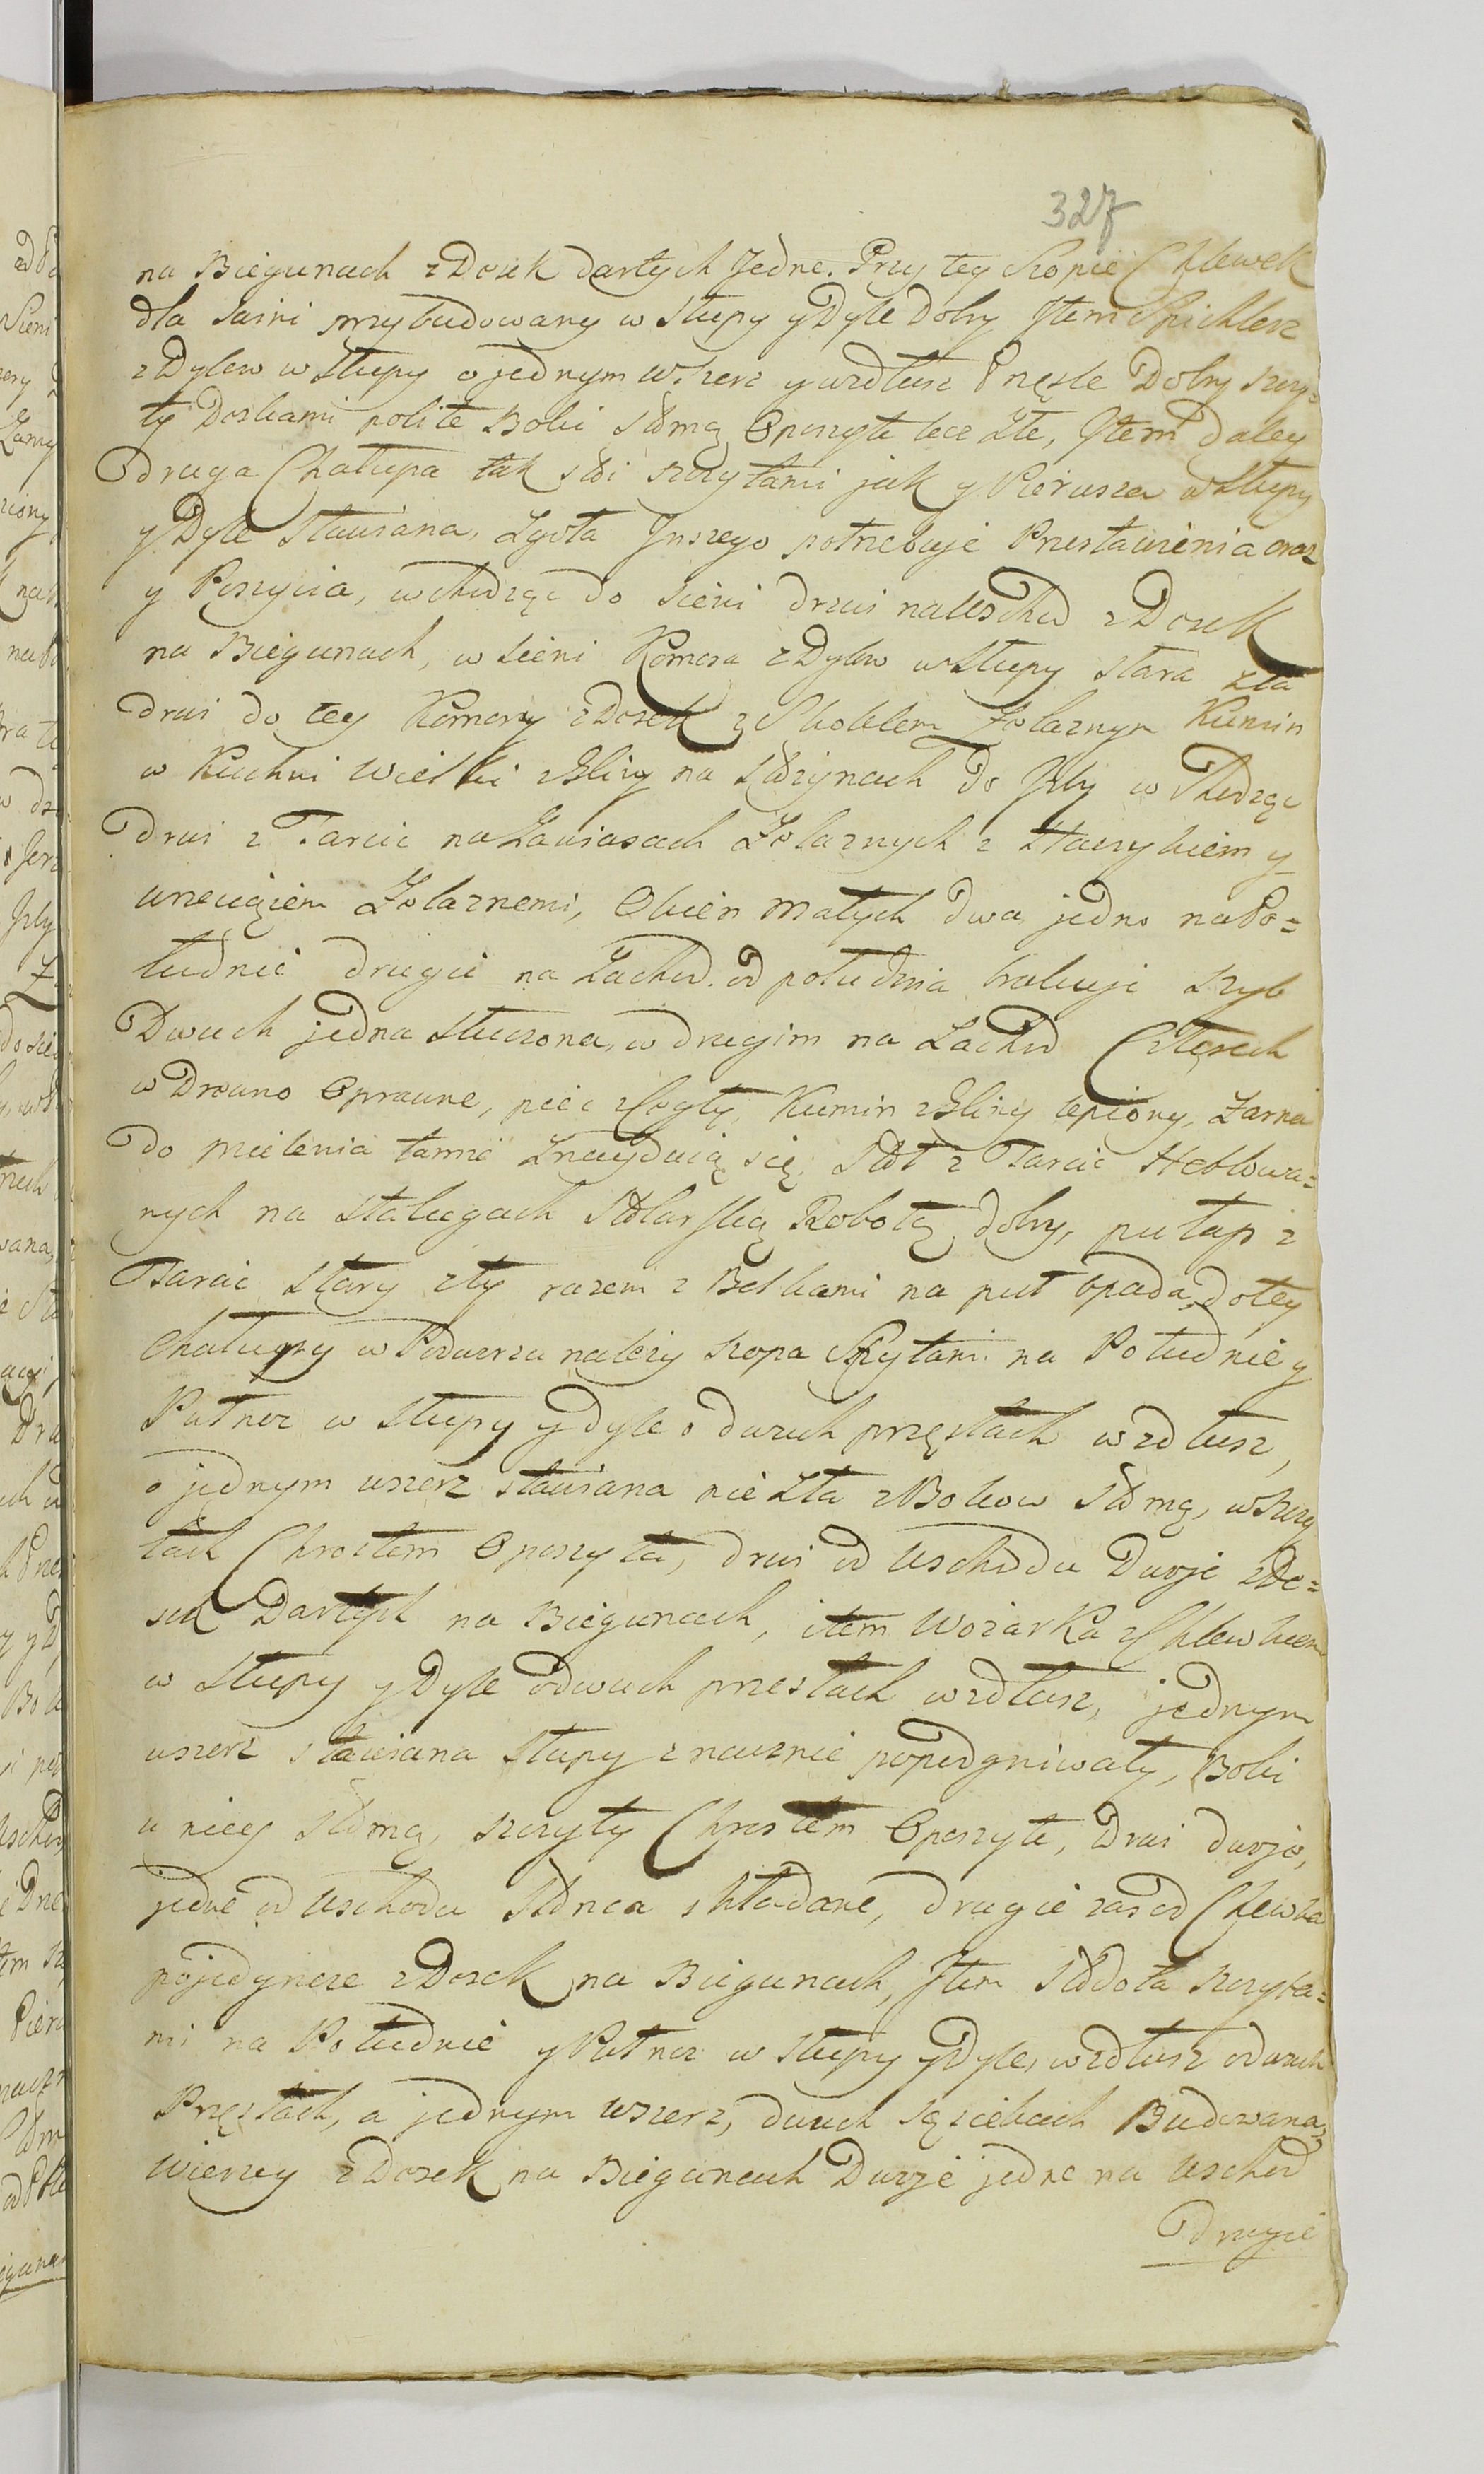 327
na Biegunach z Dosek dartych Jedne. Przy tey Szopie Chlewek
dla Swini przybudowany w słupy y Dyle Dobry Jtem Spichlerz
z Dylow w słupy o jednym wszerz y wzdłusz Przęśle Dobry szczy=
ty Doskami pobite Boki słomą Oposzyte lecz złe, Jtem daley
druga Chałupa tak stoi szczytami jak y Pierwsza w słupy
y Dyle stawiana, Zgoła Juszego potrzebuje Przestawienia oraz
y Poszycia, wchodząc do sieni drzwi na Uschod z Dosek
na Biegunach, w sieni Komora z Dylow w słupy stara zła
drzwi do tey Komory z Dosek z Skoblem żelaznym Kumin
w Kuchni wielki z Gliny na Storynach Do Jzby w Chodząc
Drzwi z Tarcic na Zawiasach Żelaznych z Haczykiem y
wrzeciążem Żelaznemi, Okien małych dwa jedno na Po=
łudnie drugie na Zachod. od południa brakuje szyb
Dwuch jedna stłuczona, w drugim na Zachod Czterech
w Drewno Oprawne, piec z Cegły, Kumin z Gliny lepiony, Żarna
Do mielenia tamże Znayduią się, Stoł z Tarcic Heblowa=
nych na stalugach Stolarską Robotą dobry, pułap z
Tarcic stary zły razem z Belkami na puł opada, do tey
Chałupy w Podworzu należy szopa Szczytami na Południe y
Pułnoc w słupy y dyle o dwuch przęsłach wzdłusz,
o jednym wszerz stawiana nie zła z Bokow słomą, w szczy
tach Chrostem Oposzyta, drzwi od Uschodu Dwoje z Do=
sek Dartych na Biegunach, item Wożarka z Chlewkiem
w słupy y Dyle o dwuch przesłach wzdłusz, jednym
wszerz stawiana słupy znacznie popodgniwały, Boki
u niey słomą, szczyty Chrostem Oposzyte, Drzwi dwoje,
jedne od Uschodu Słonca składane, drugie zas od Chlewka
pojedyncze z Dosek na Biegunach, Jtem Stodoła szczyta=
mi na Południe y Pułnoc w słupy y Dyle, wzdłusz o dwuch
Przęsłach, a jednym wszerz, dwuch sąsiekach Budowana,
wierzey z Dosek na Biegunach Dwoje jedne na Uschod
Drugie